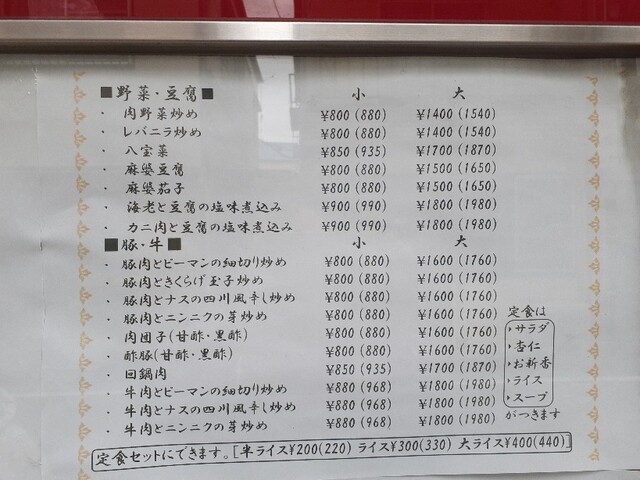 ■野菜・豆腐■ 小 大
・ 肉野菜炒め ¥800(880) ¥1400(1540)
・ レバニラ炒め ¥800(880) ¥1400(1540)
・ 八宝菜 ¥850(935) ¥1700(1870)
・ 麻婆豆腐 ¥800(880) ¥1500(1650)
・ 麻婆茄子 ¥800(880) ¥1500(1650)
・ 海老と豆腐の塩味煮込み ¥900(990) ¥1800(1980)
・ カニ肉と豆腐の塩味煮込み ¥900(990) ¥1800(1980)
■豚・牛■ 小 大
・ 豚肉とピーマンの細切り炒め ¥800(880) ¥1600(1760)
・ 豚肉ときくらげ玉子炒め ¥800(880) ¥1600(1760)
・ 豚肉とナスの四川風辛し炒め ¥800(880) ¥1600(1760)
・ 豚肉とニンニクの芽炒め ¥800(880) ¥1600(1760)
・ 肉団子(甘酢・黒酢) ¥800(880) ¥1600(1760)
・ 酢豚(甘酢・黒酢) ¥800(880) ¥1600(1760)
・ 回鍋肉 ¥850(935) ¥1700(1870)
・ 牛肉とピーマンの細切り炒め ¥880(968) ¥1800(1980)
・ 牛肉とナスの四川風辛し炒め ¥880(968) ¥1800(1980)
・ 牛肉とニンニクの芽炒め ¥880(968) ¥1800(1980)
定食は
・サラダ
・杏仁
・お新香
・ライス
・スープ
がつきます
定食セットにできます。[半ライス¥200(220) ライス¥300(330) 大ライス¥400(440)]